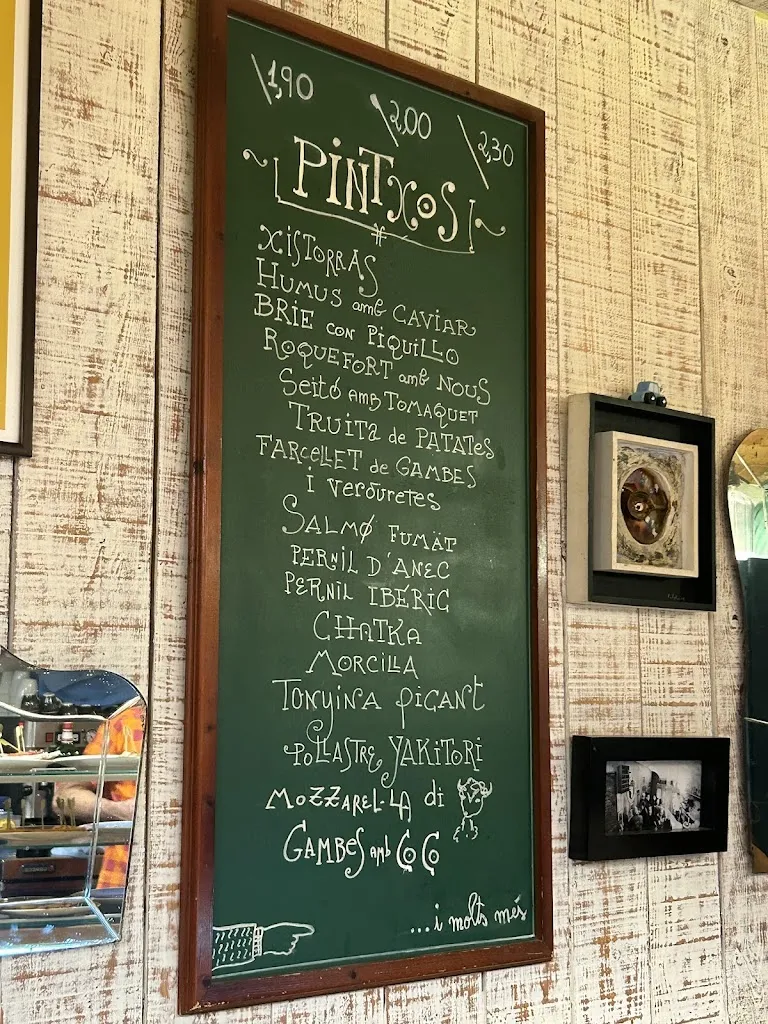 1,90
2,00
2,30
PINTXOS
XISTORRAS
HUMUS amb CAVIAR
BRIE con PIQUILLO
ROQUEFORT amb NOUS
Seitó AMB TOMAQUET
TRUITa de PATATES
FARCELLET de GAMBES
i verduretes
SALMØ FUMÄT
PERNIL D'ANEC
PERNIL IBÉRIC
CHATKA
MORCILLA
TONYINA PICANT
POLLASTRE YAKITORI
MOZZAREL·LA di
GAMBES amb COCO
...i molts més